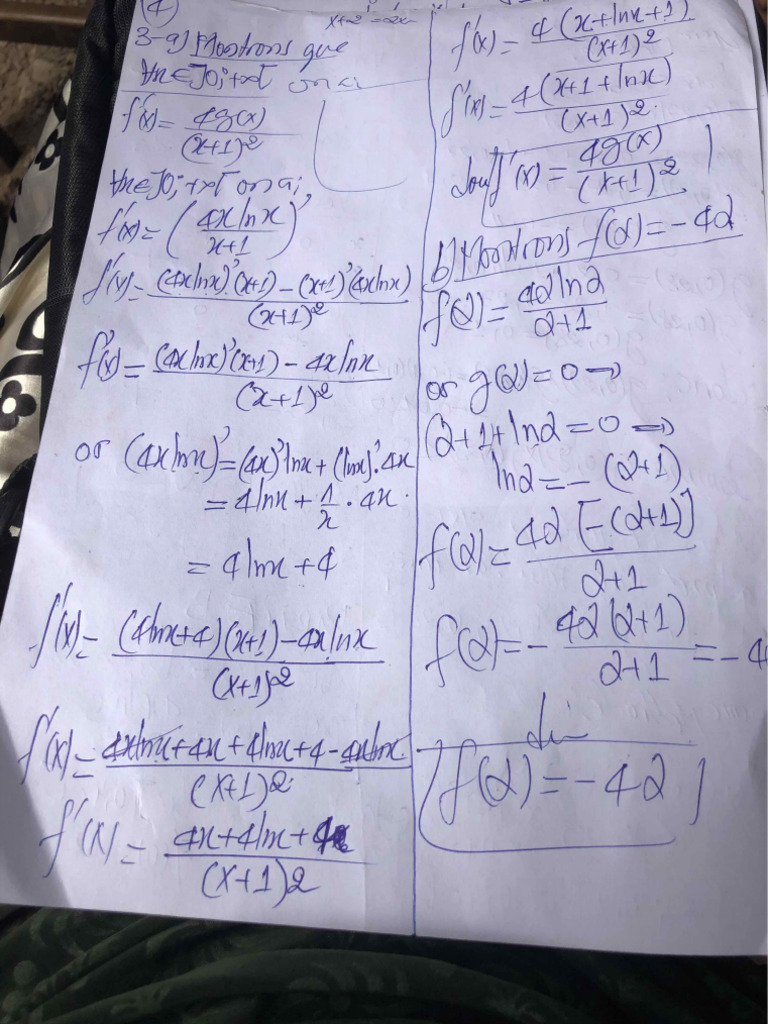 (4)
x+2 = 2x
3-a) Montrons que
∀x∈]0;+∞[ on a:
f'(x)= 4g(x)/(x+1)²
∀x∈]0;+∞[ on a;
f'(x)= (4xlnx/x+1)'
f'(x)= (4xlnx)'(x+1) - (x+1)'(4xlnx)/(x+1)²
f'(x)= (4xlnx)'(x+1) - 4xlnx/(x+1)²
or (4xlnx)'=(4x)'lnx+(lnx)'.4x
= 4lnx + 1/x · 4x.
= 4lnx+4
f'(x)= (4lnx+4)(x+1)-4xlnx/(x+1)²
f'(x)= 4xlnx+4x+4lnx+4-4xlnx/(x+1)²
f'(x)= 4x+4lnx+4/(x+1)2
f'(x)= 4(x+lnx+1)/(x+1)²
f'(x)= 4(x+1+lnx)/(x+1)²
f'(x)= 4g(x)/(x+1)²
b) Montrons f(α)=-4α
f(α)= 4αlnα/α+1
or g(α)=0 →
α+1+lnα=0 →
lnα=-(α+1)
f(α)= 4α[-(α+1)]/α+1
f(α)=- 4α(α+1)/α+1 =-4
f(α)=-4α